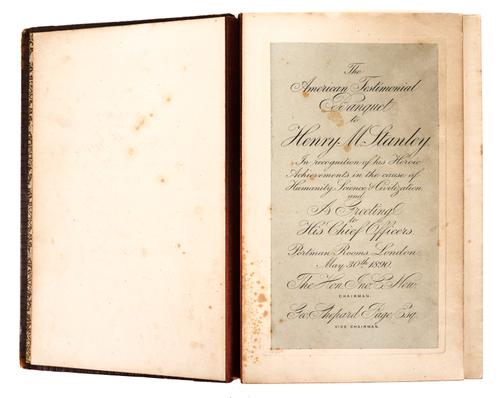 The
American Testimonial
Banquet
to
Henry M. Stanley.
In recognition of his Heroic
Achievements in the cause of
Humanity, Science & Civilization,
and
As Greeting
to
His Chief Officers.
Portman Rooms, London.
May 30th 1890.
The Hon. Jno. C. New.
CHAIRMAN.
Geo. Shepard Page, Esq.
VICE CHAIRMAN.